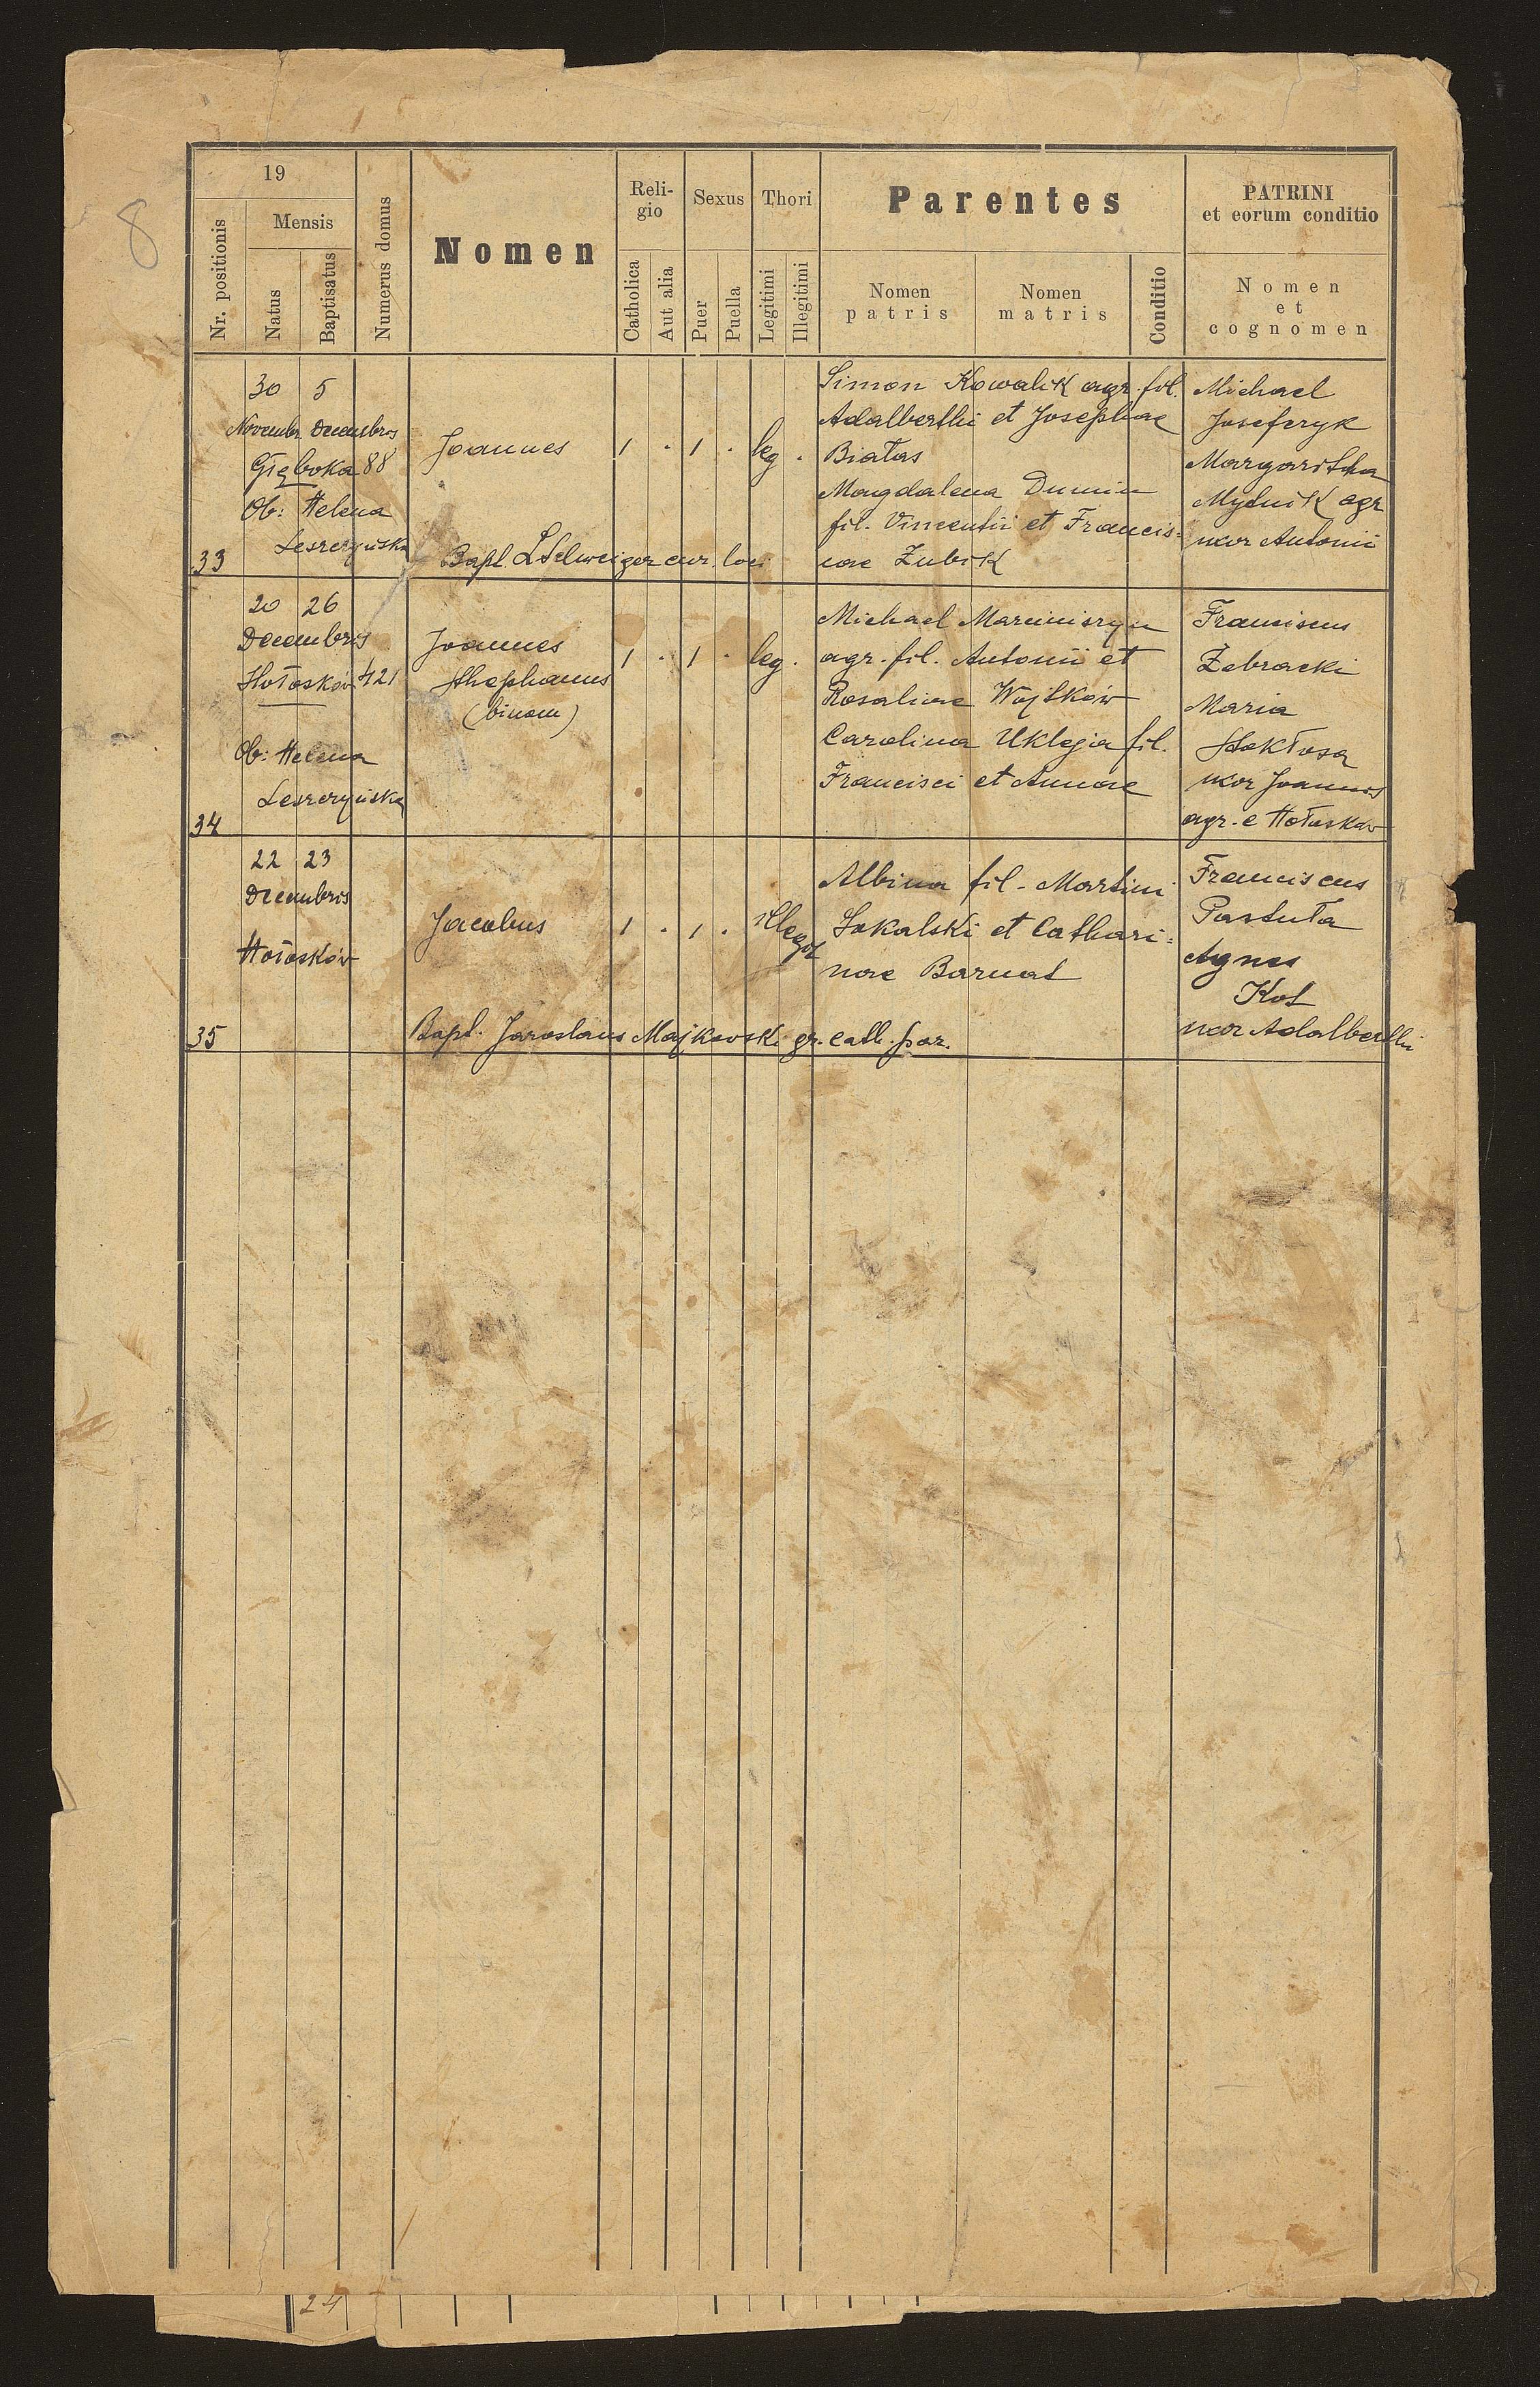 8
19
Nr. positionis
Mensis
Natus
Baptisatus
Numerus domus
Nomen
Reli-
gio
Catholica
Aut alia
Sexus
Puer
Puella
Thori
Legitimi
Illegitimi
Parentes
Nomen
patris
Nomen
matris
Conditio
PATRINI
et eorum conditio
Nomen
et
cognomen
33
30 5
Novembr. Decembris
Głęboka 88
Ob: Helena
Leszczyńska
Joannes
1 . 1 . leg .
Bapt. L Schweiger cur. loci
Simon Kowalik agr. fil.
Adalberthi et Josephae
Białas
Magdalena Dumin
fil. Vincentii et Francis=
cae Zubik
Michael
Josefczyk
Margaritha
Mytnik agr
uxor Antonii
34
20 26
Decembris
Hołosków 421
Ob: Helena
Leszczyńska
Joannes
Sthephanus
(binom)
1 . 1 . leg .
Michael Marciniszyn
agr. fil. Antonii et
Rosaliae Wojtków
Carolina Ukleja fil.
Francisci et Annae
Franciscus
Żebracki
Maria
Stokłosa
uxor Joannis
agr. e Hołosków
35
22 23
Decembris
Hołosków
Jacobus
1 . 1 .
Bapt. Jaroslaus Majkowski gr. cath. par.
Albina fil. Martini
Sokalski et Cathari=
nae Barnat
Franciscus
Pastuła
Agnes
Kot
uxor Adalberthi
24